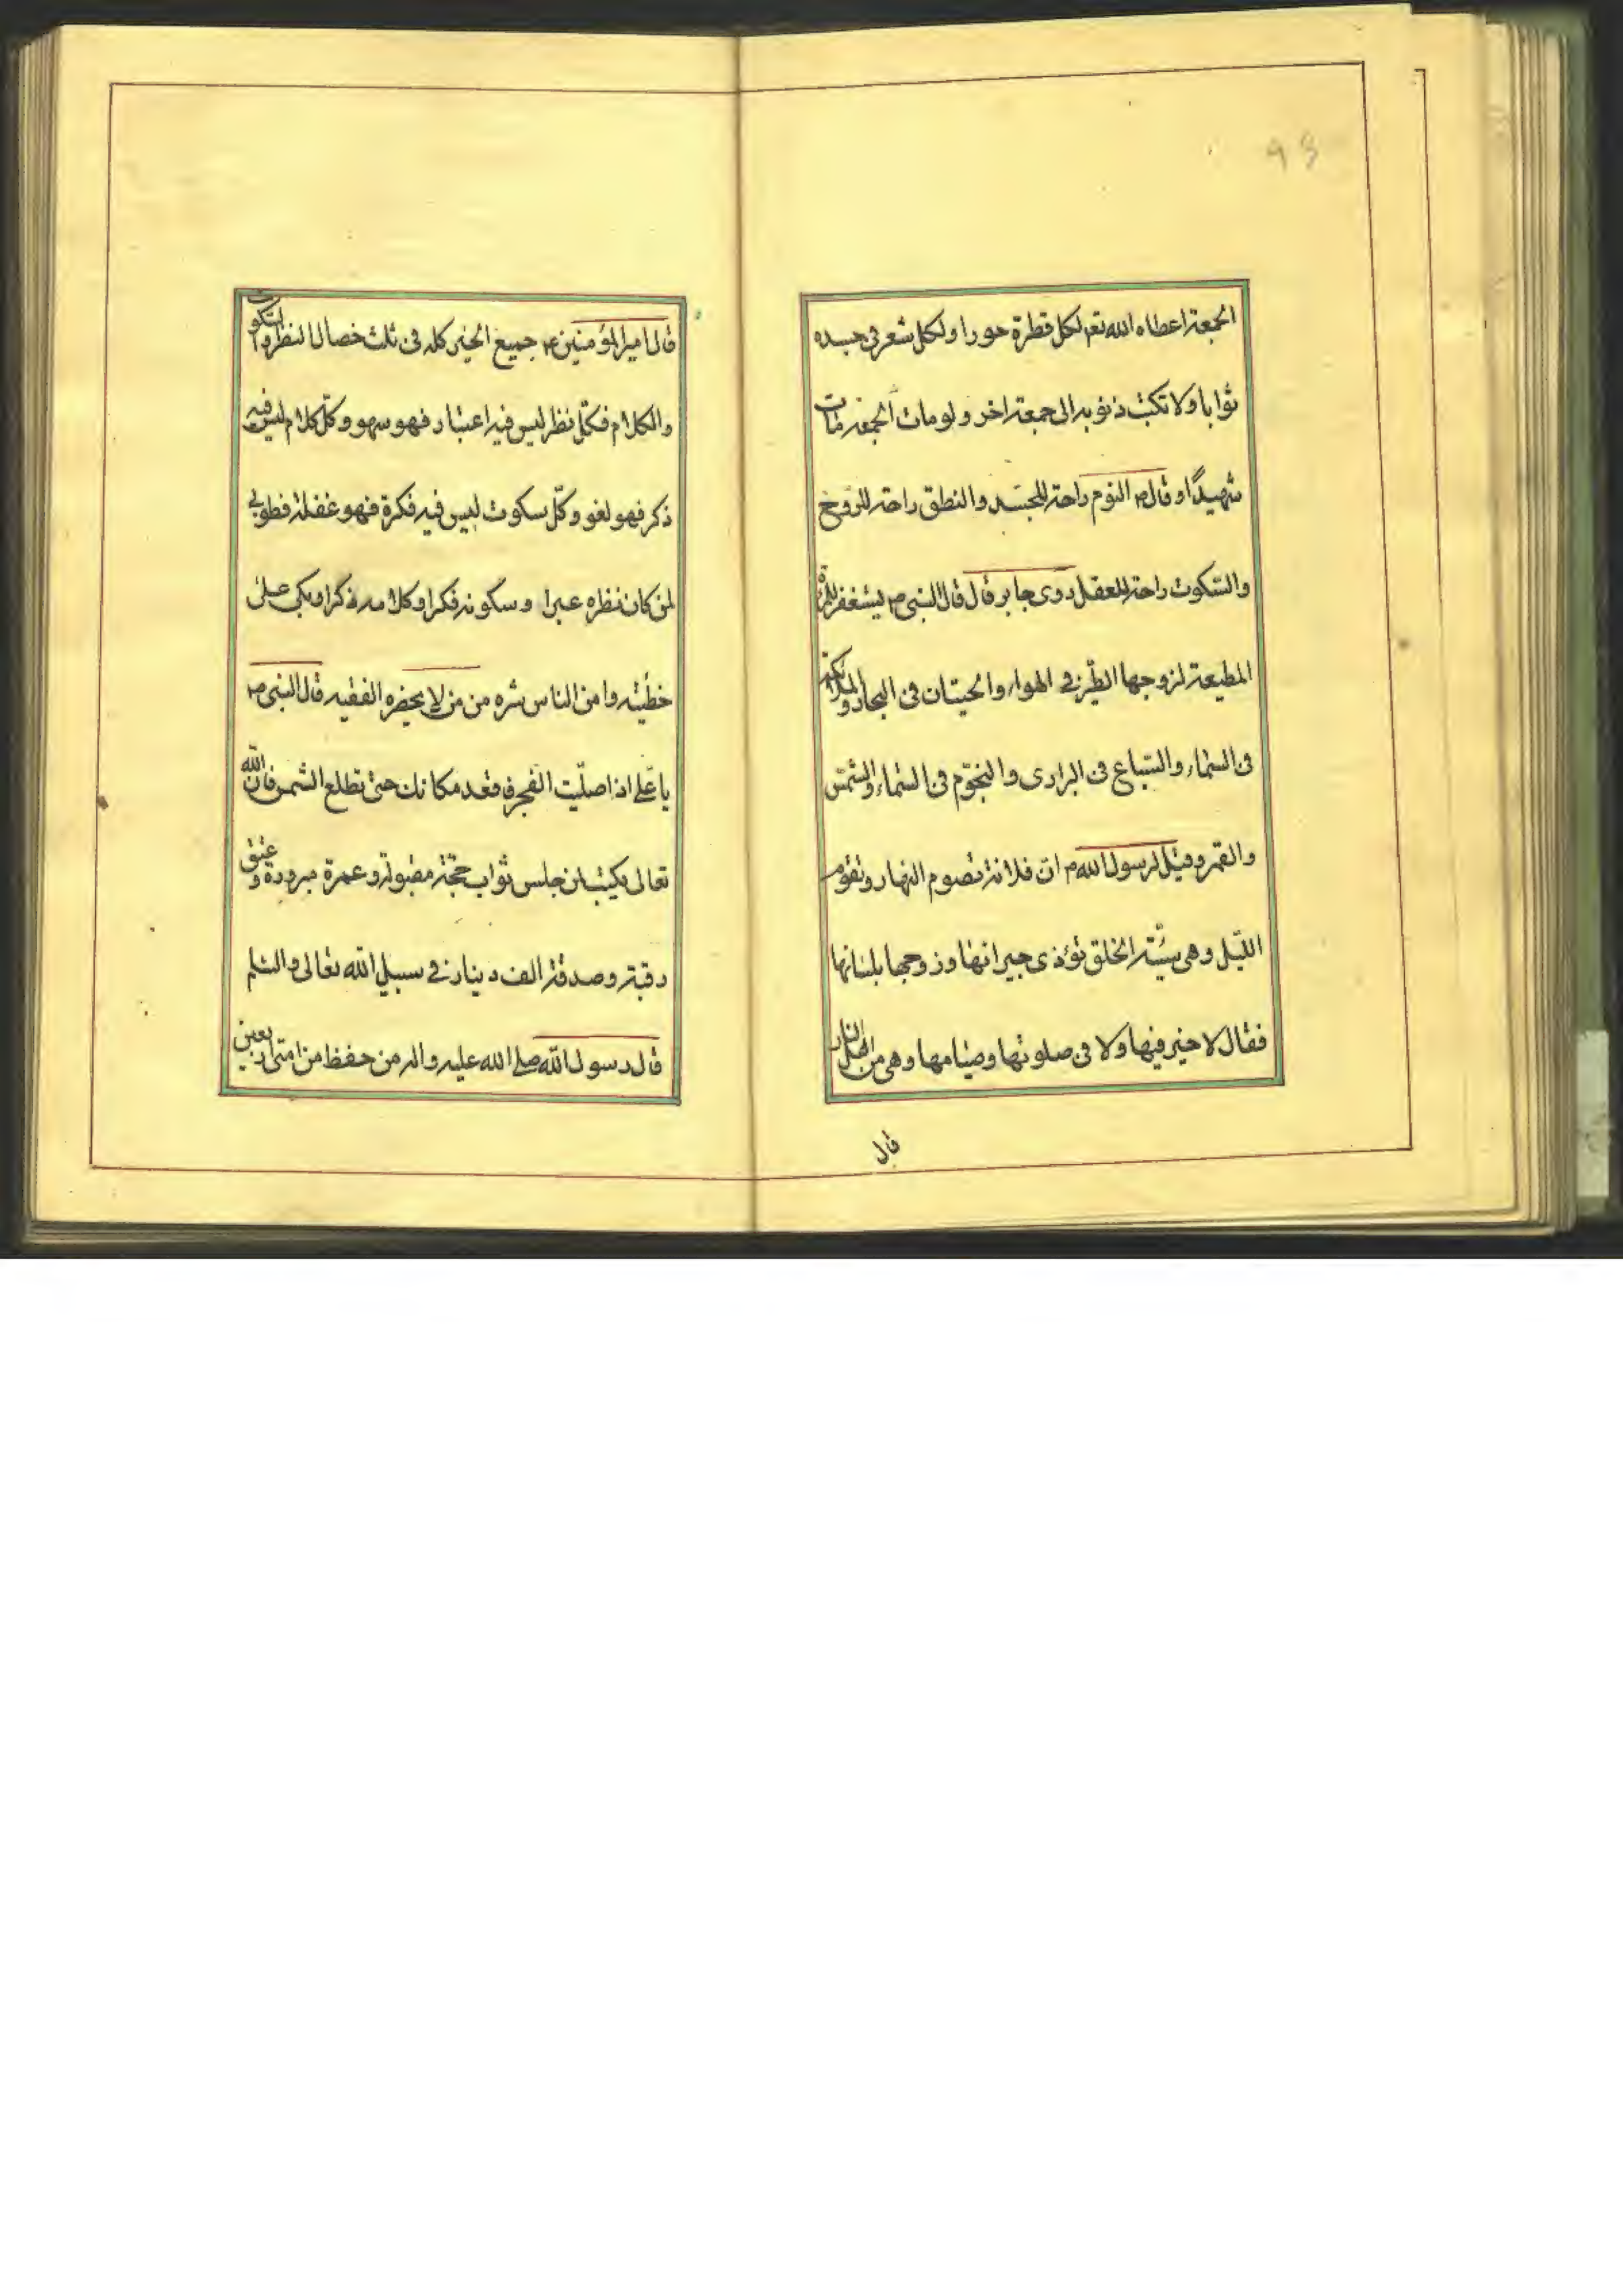 ٩٣
الجمعة اعطاه الله تعم لكل قطرة حورا ولكل شعر فى جسده
ثوابا ولا تكتب ذنوبه الى جمعة اخر ولو مات الجمعة مات
شهيدًا وقال ص النوم راحة للجسد والنطق راحة للروح
والسكوت راحة للعقل روى جابر قال قال النبى ص يستغفر للمرأة
المطيعة لزوجها الطير فى الهواء والحيتان فى البحار والملائكة
فى السماء والسباع فى البرارى والنجوم فى السماء والشمس
والقمر وقيل لرسول الله ص ان فلانة تصوم النهار وتقوم
الليل وهى سيئة الخلق تؤذى جيرانها وزوجها بلسانها
فقال لا خير فيها ولا فى صلوتها وصيامها وهى من اهل النار
قال
قال امير المؤمنين ع جميع الخير كله فى ثلث خصال النظر والسكوت
والكلام فكل نظر ليس فيه اعتبار فهو سهو وكل كلام ليس فيه
ذكر فهو لغو وكل سكوت ليس فيه فكرة فهو غفلة فطوبى
لمن كان نظره عبرا وسكوته فكرا وكلامه ذكرا وبكى على
خطيئته وامن الناس شره من من لا يحضره الفقيه قال النبى ص
يا على اذا صليت الفجر فاقعد مكانك حتى تطلع الشمس فان الله
تعالى يكتب لمن جلس ثواب حجة مقبولة وعمرة مبرورة وعتق
رقبة وصدقة الف دينار فى سبيل الله تعالى والسلم
قال رسول الله صلى الله عليه واله من حفظ من امتى اربعين